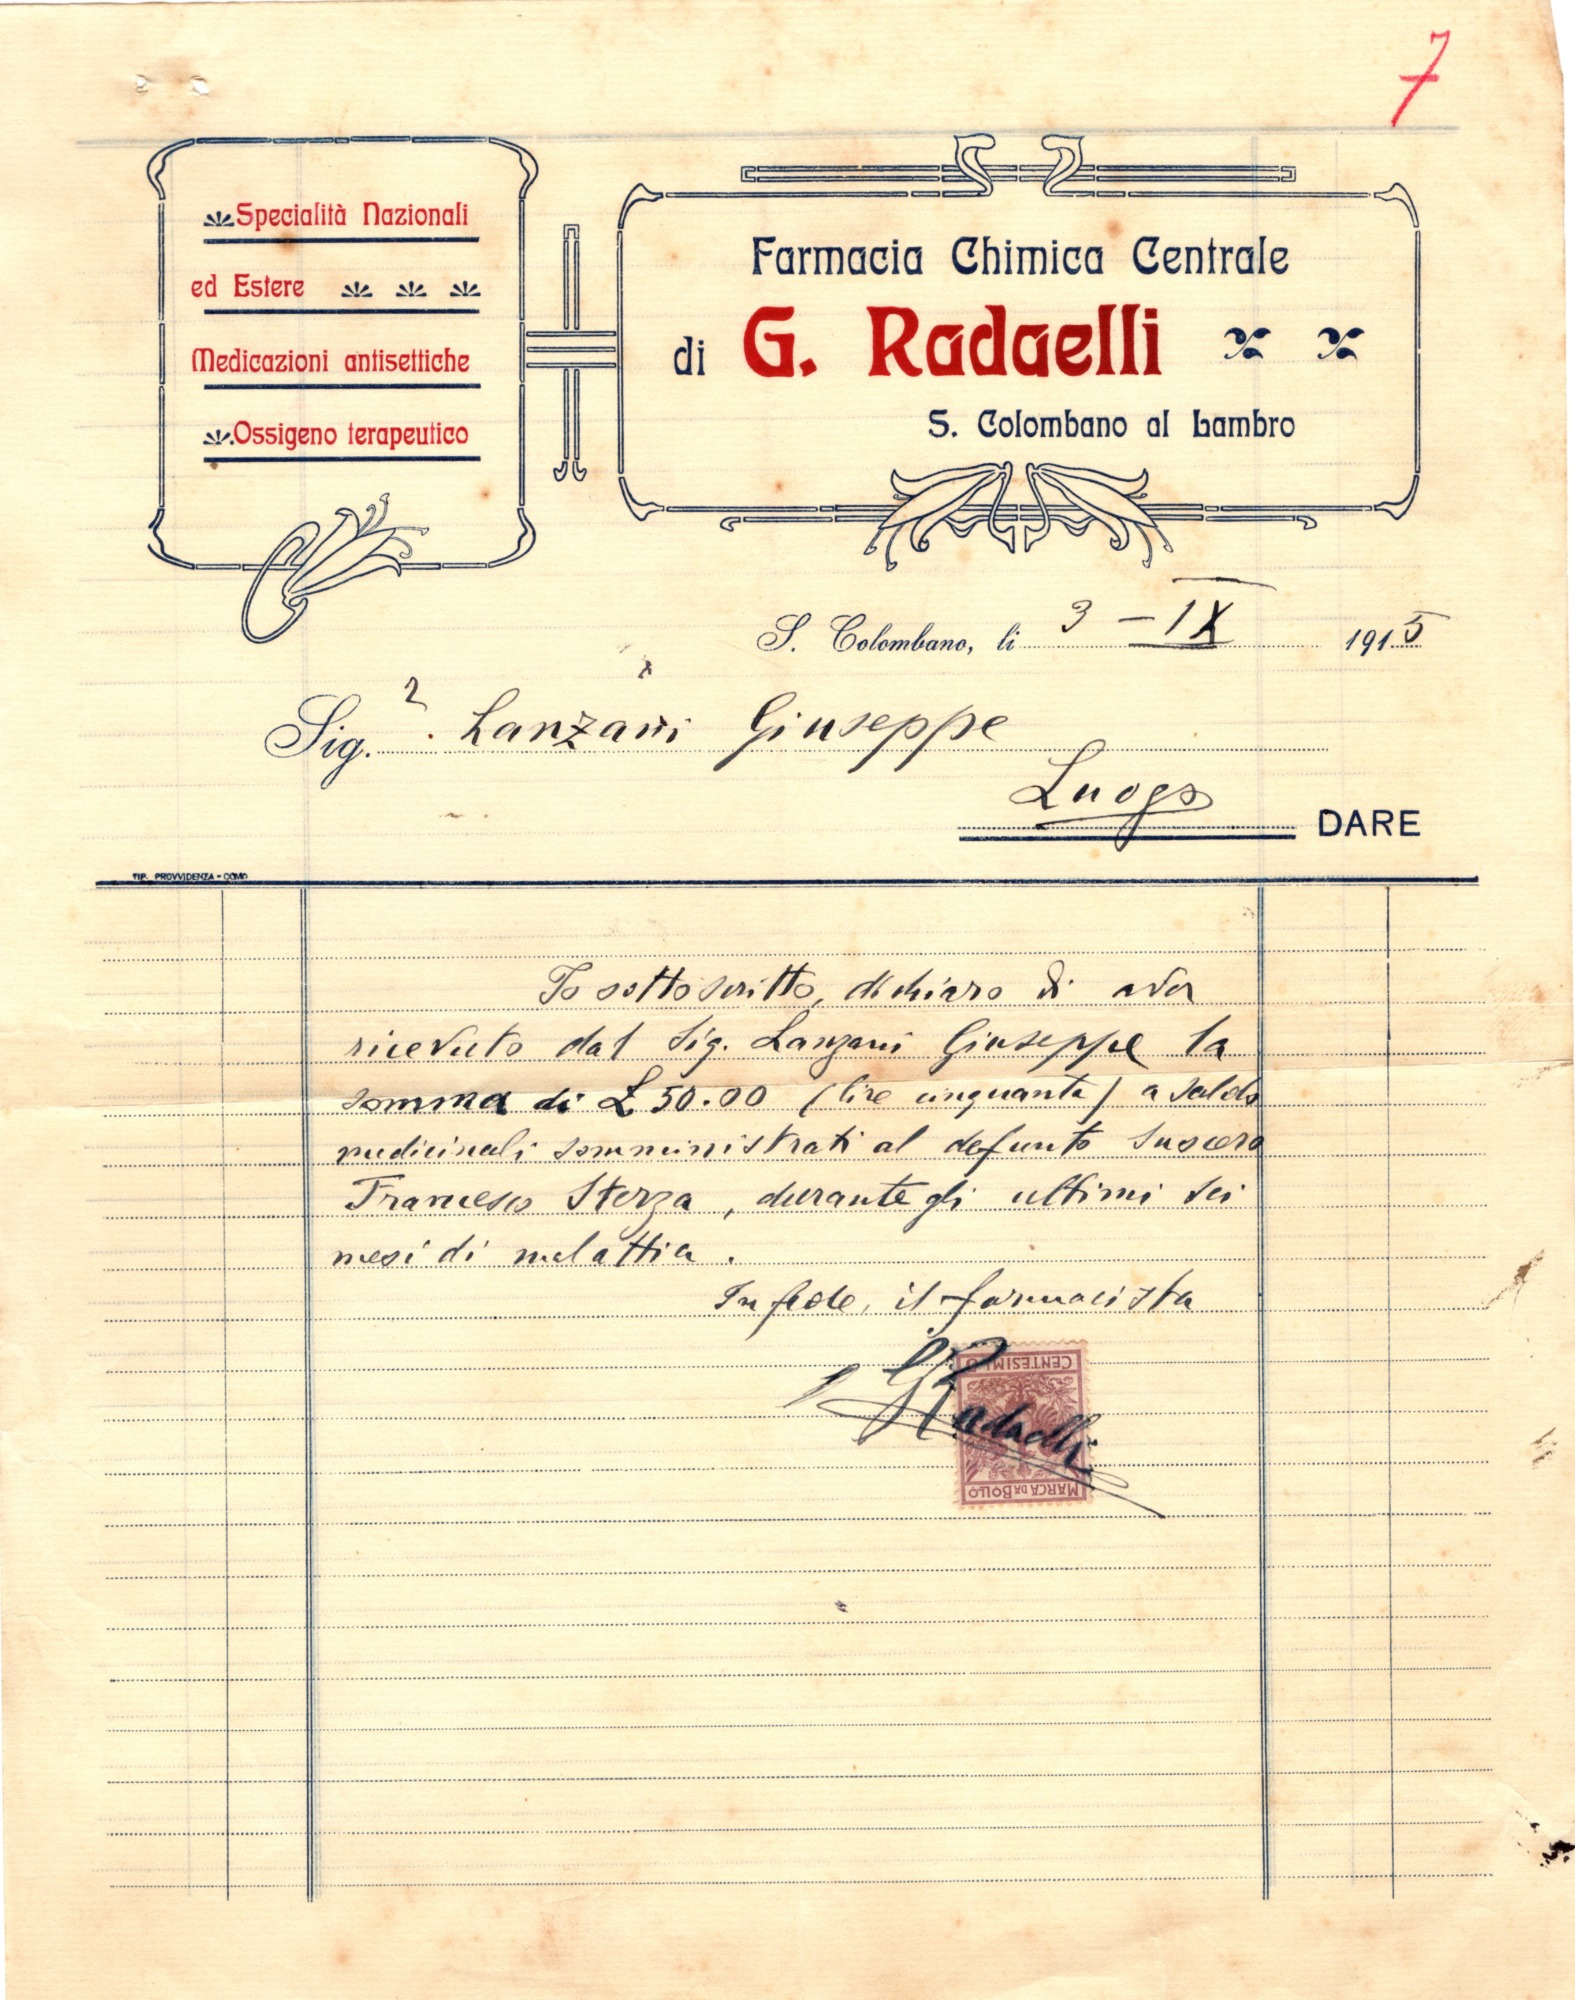 7
Specialità Nazionali
ed Estere
Medicazioni antisettiche
Ossigeno terapeutico
Farmacia Chimica Centrale
di G. Radaelli
S. Colombano al Lambro
S. Colombano, li 3 - IX 1915
Sig.r Lanzani Giuseppe
Luogo
DARE
TIP. PROVVIDENZA - COMO
Io sottoscritto, dichiaro di aver
ricevuto dal Sig. Lanzani Giuseppe la
somma di £ 50.00 (lire cinquanta) a saldo
medicinali somministrati al defunto suocero
Francesco Sterza, durante gli ultimi sei
mesi di malattia.
In fede, il farmacista
G Radaelli
CENTESIMI
MARCA DA BOLLO